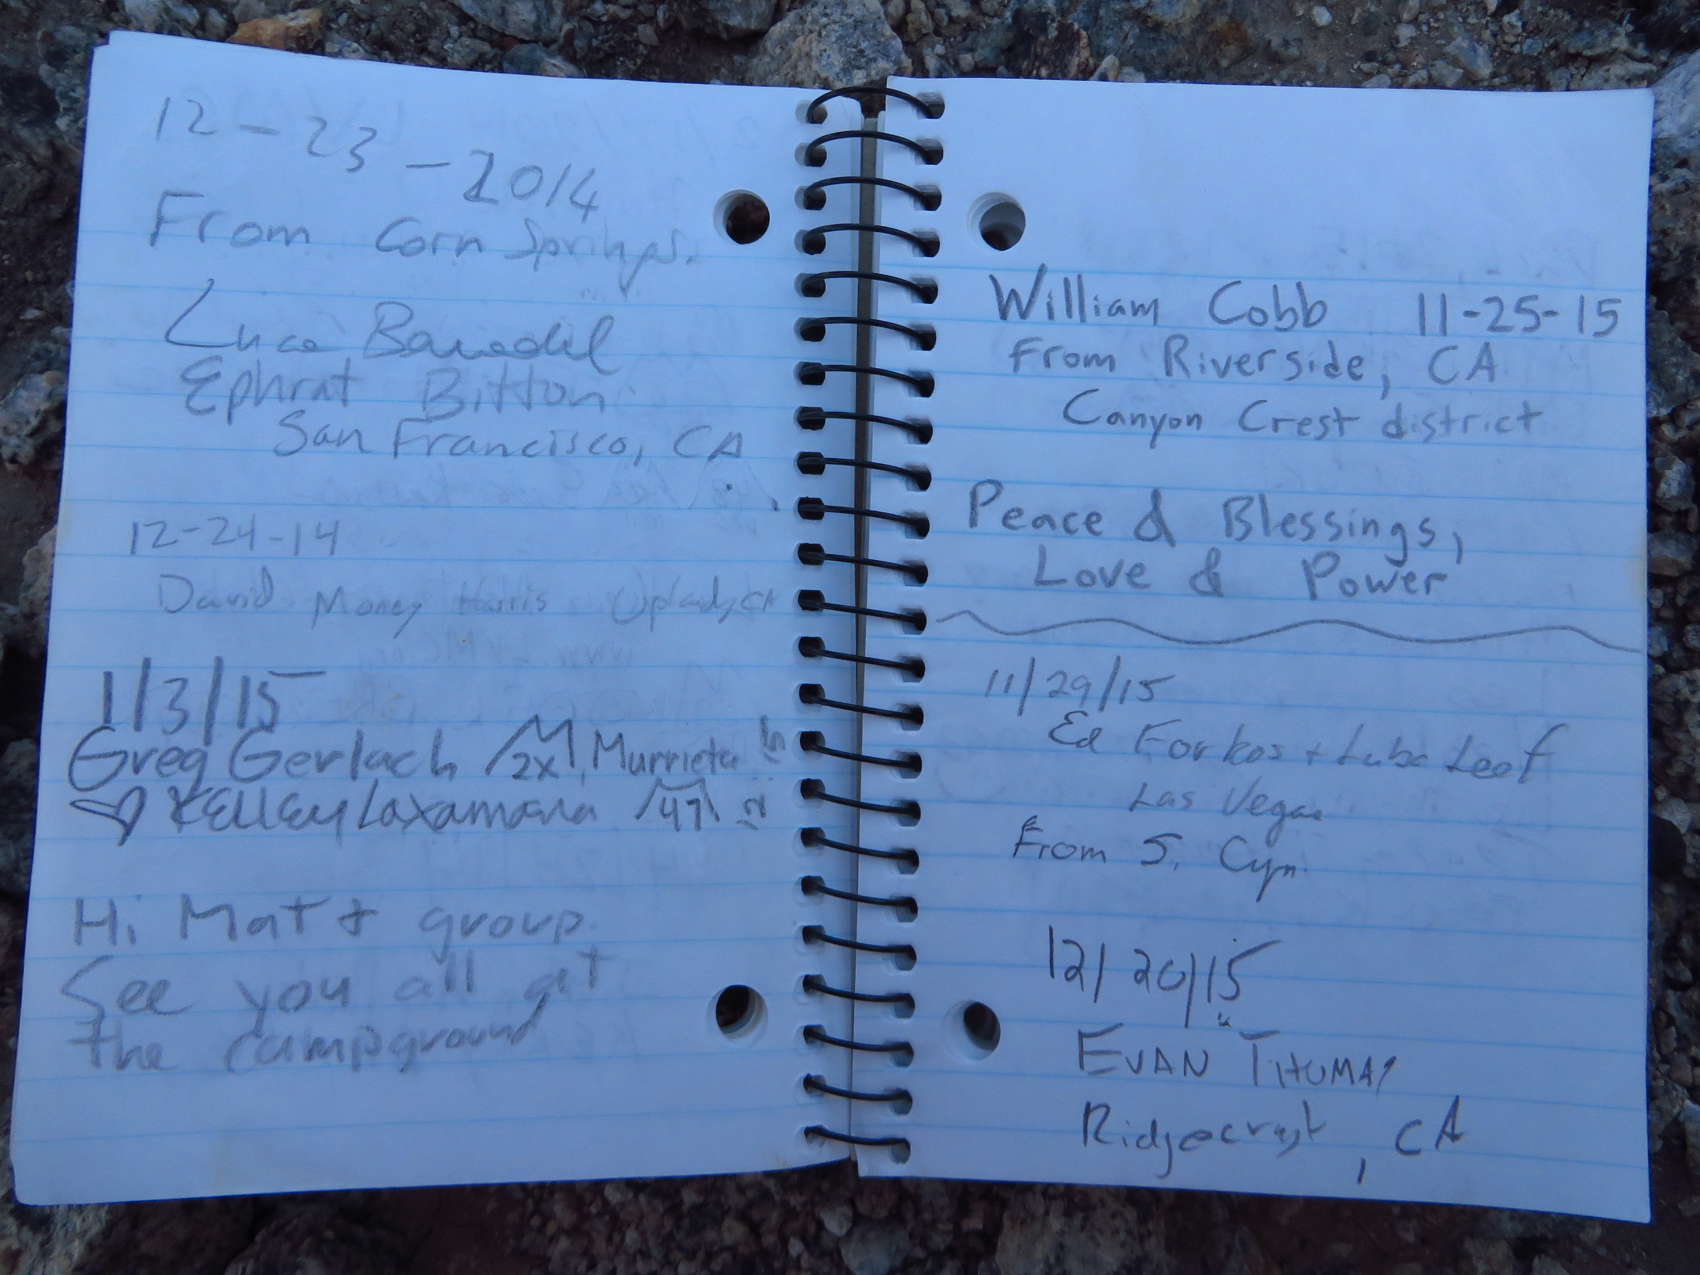 12-23-2014
From Corn Springs.
Luca
Ephrat Bitton
San Francisco, CA
12-24-14
David Money Harris Upland, CA
1/3/15
Greg Gerlach 2x Murrieta
KELLEY Laxamana
Hi Matt & group.
See you all at
the campground
William Cobb 11-25-15
From Riverside, CA
Canyon Crest district
Peace & Blessings,
Love & Power
11/29/15
Ed Forkos + Luba Leef
Las Vegas
From S. Cyn.
12/20/15
EVAN THOMAS
Ridgecrest, CA